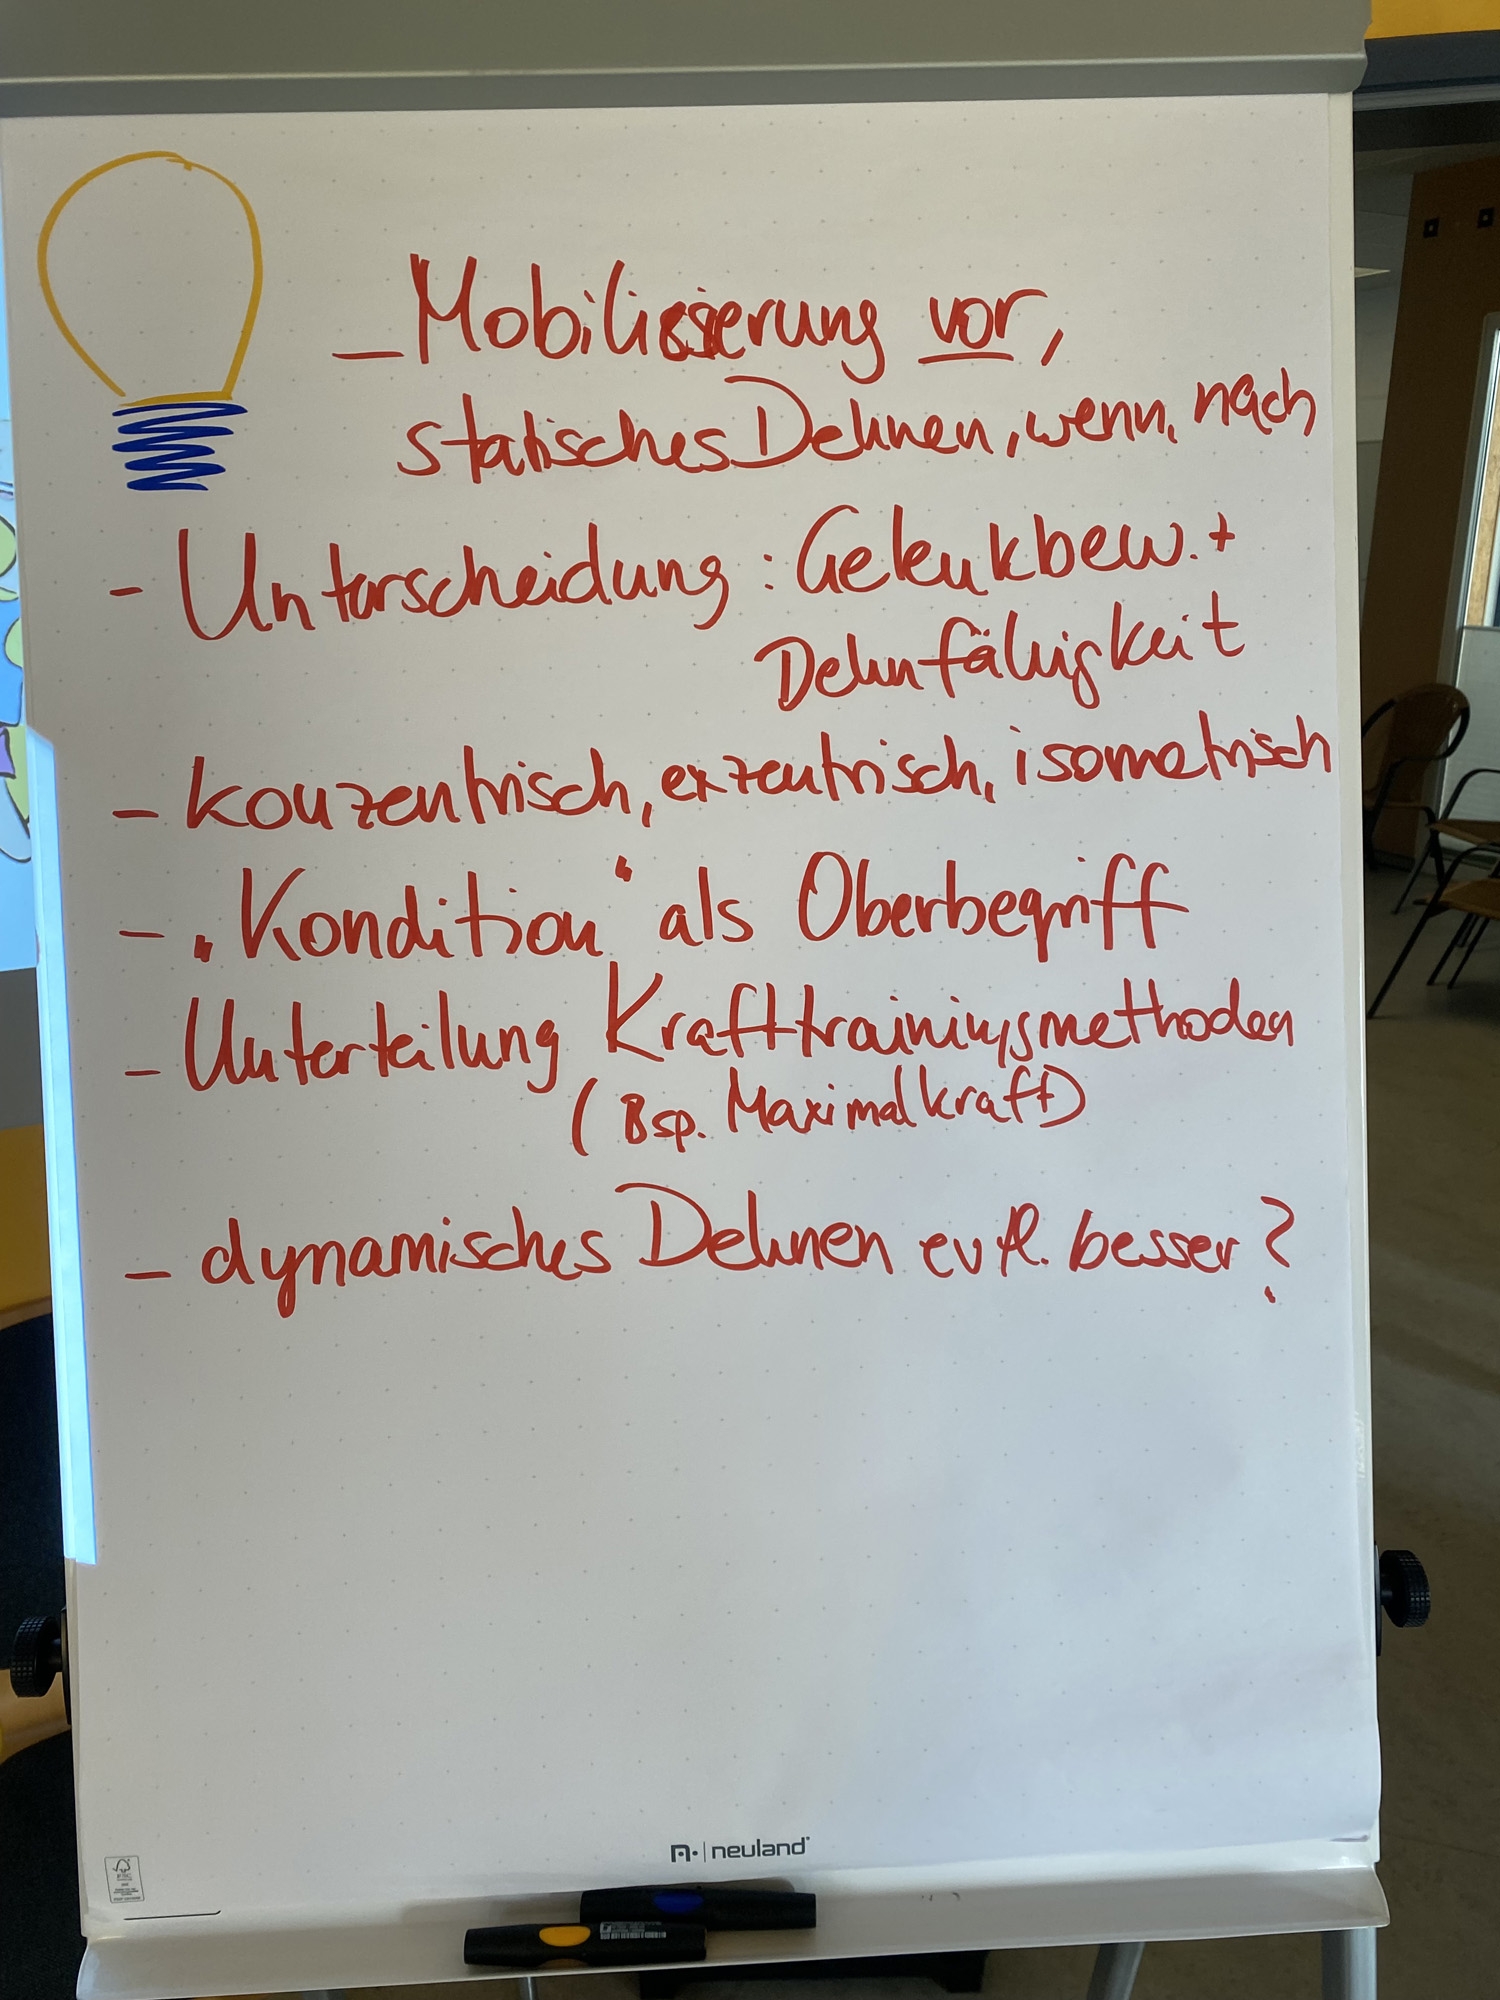 – Mobilisierung vor,
statisches Dehnen, wenn, nach
- Unterscheidung : Gelenkbew. +
Dehnfähigkeit
– konzentrisch, exzentrisch, isometrisch
– „Kondition“ als Oberbegriff
– Unterteilung Krafttrainingsmethoden
(Bsp. Maximalkraft)
– dynamisches Dehnen evtl. besser?
neuland
FSC